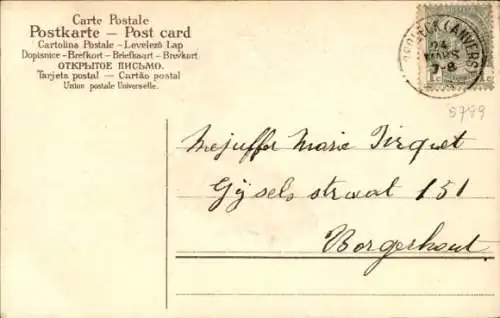 Carte Postale
Postkarte — Post card
Cartolina Postale - Levelező Lap
Dopisnice - Brefkort - Briefkaart - Brevkort
ОТКРЫТОЕ ПИСЬМО.
Tarjeta postal — Cartão postal
Union postale Universelle.
(ANVERS)
24
MARS
7-8
1 c 1 c
5789
Mejuffer Marie Pirquet
Gijselsstraat 151
Borgerhout